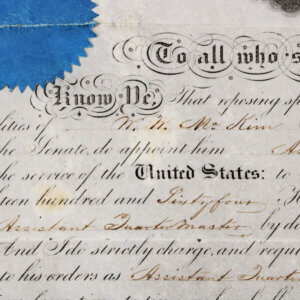 To all who s
Know Ye, That reposing sp
lities of W. W. McKim
the Senate, do appoint him A
the service of the United States: to
teen hundred and Sixty four.
Assistant Quarter Master by do
And I do strictly charge, and requ
to his orders as Assistant Quarter